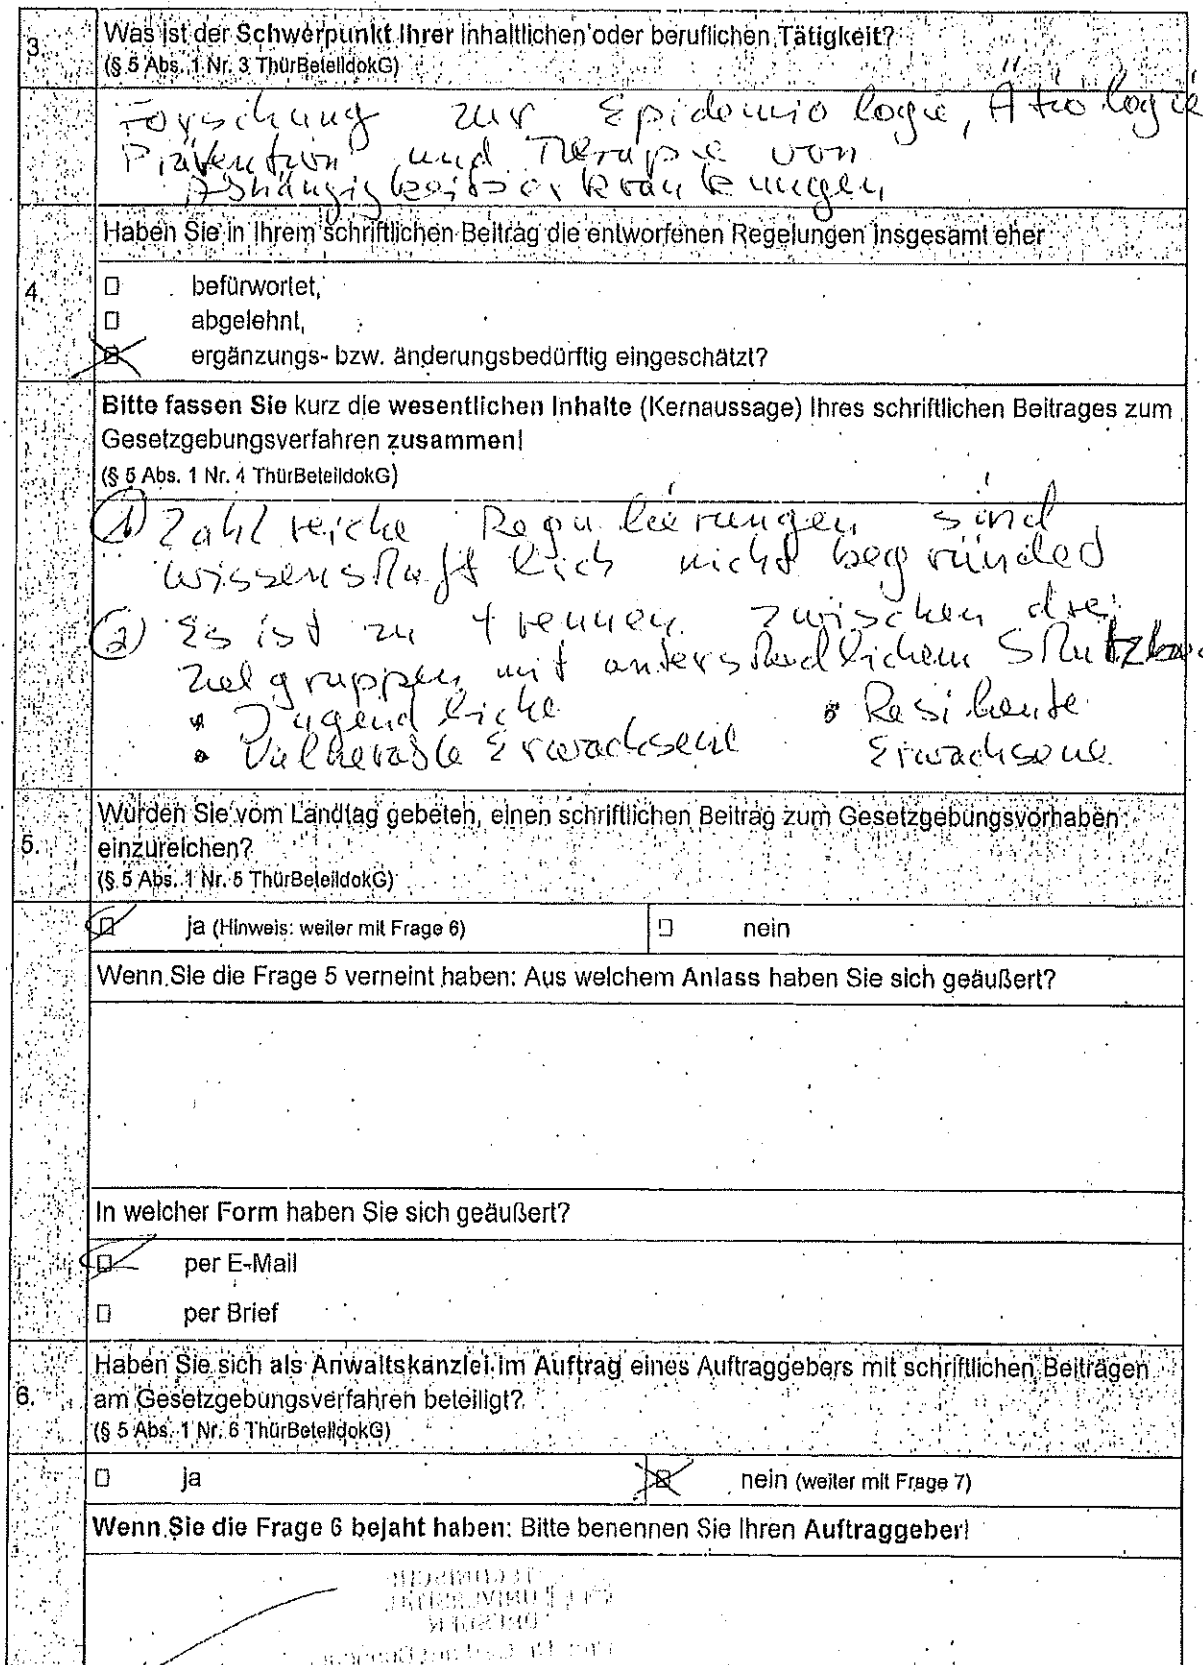 3. Was ist der Schwerpunkt Ihrer inhaltlichen oder beruflichen Tätigkeit?
(§ 5 Abs. 1 Nr. 3 ThürBeteildokG)
Forschung zur Epidemiologie, Ätiologie
Prävention und Therapie von
Abhängigkeitserkrankungen
Haben Sie in Ihrem schriftlichen Beitrag die entworfenen Regelungen insgesamt eher
4.
befürwortet,
abgelehnt,
ergänzungs- bzw. änderungsbedürftig eingeschätzt?
Bitte fassen Sie kurz die wesentlichen Inhalte (Kernaussage) Ihres schriftlichen Beitrages zum
Gesetzgebungsverfahren zusammen!
(§ 5 Abs. 1 Nr. 4 ThürBeteildokG)
1) Zahlreiche Regulierungen sind
wissenschaftlich nicht begründed
2) Es ist zu trennen zwischen drei
Zielgruppen mit unterschiedlichem
• Jugendliche • Resiliente
• Vulnerable Erwachsene Erwachsene
Wurden Sie vom Landtag gebeten, einen schriftlichen Beitrag zum Gesetzgebungsvorhaben
5. einzureichen?
(§ 5 Abs. 1 Nr. 5 ThürBeteildokG)
ja (Hinweis: weiter mit Frage 6) nein
Wenn Sie die Frage 5 verneint haben: Aus welchem Anlass haben Sie sich geäußert?
In welcher Form haben Sie sich geäußert?
per E-Mail
per Brief
Haben Sie sich als Anwaltskanzlei im Auftrag eines Auftraggebers mit schriftlichen Beiträgen
6. am Gesetzgebungsverfahren beteiligt?
(§ 5 Abs. 1 Nr. 6 ThürBeteildokG)
ja nein (weiter mit Frage 7)
Wenn Sie die Frage 6 bejaht haben: Bitte benennen Sie Ihren Auftraggeber!
TECHNISCHE
UNIVERSITÄT
DRESDEN